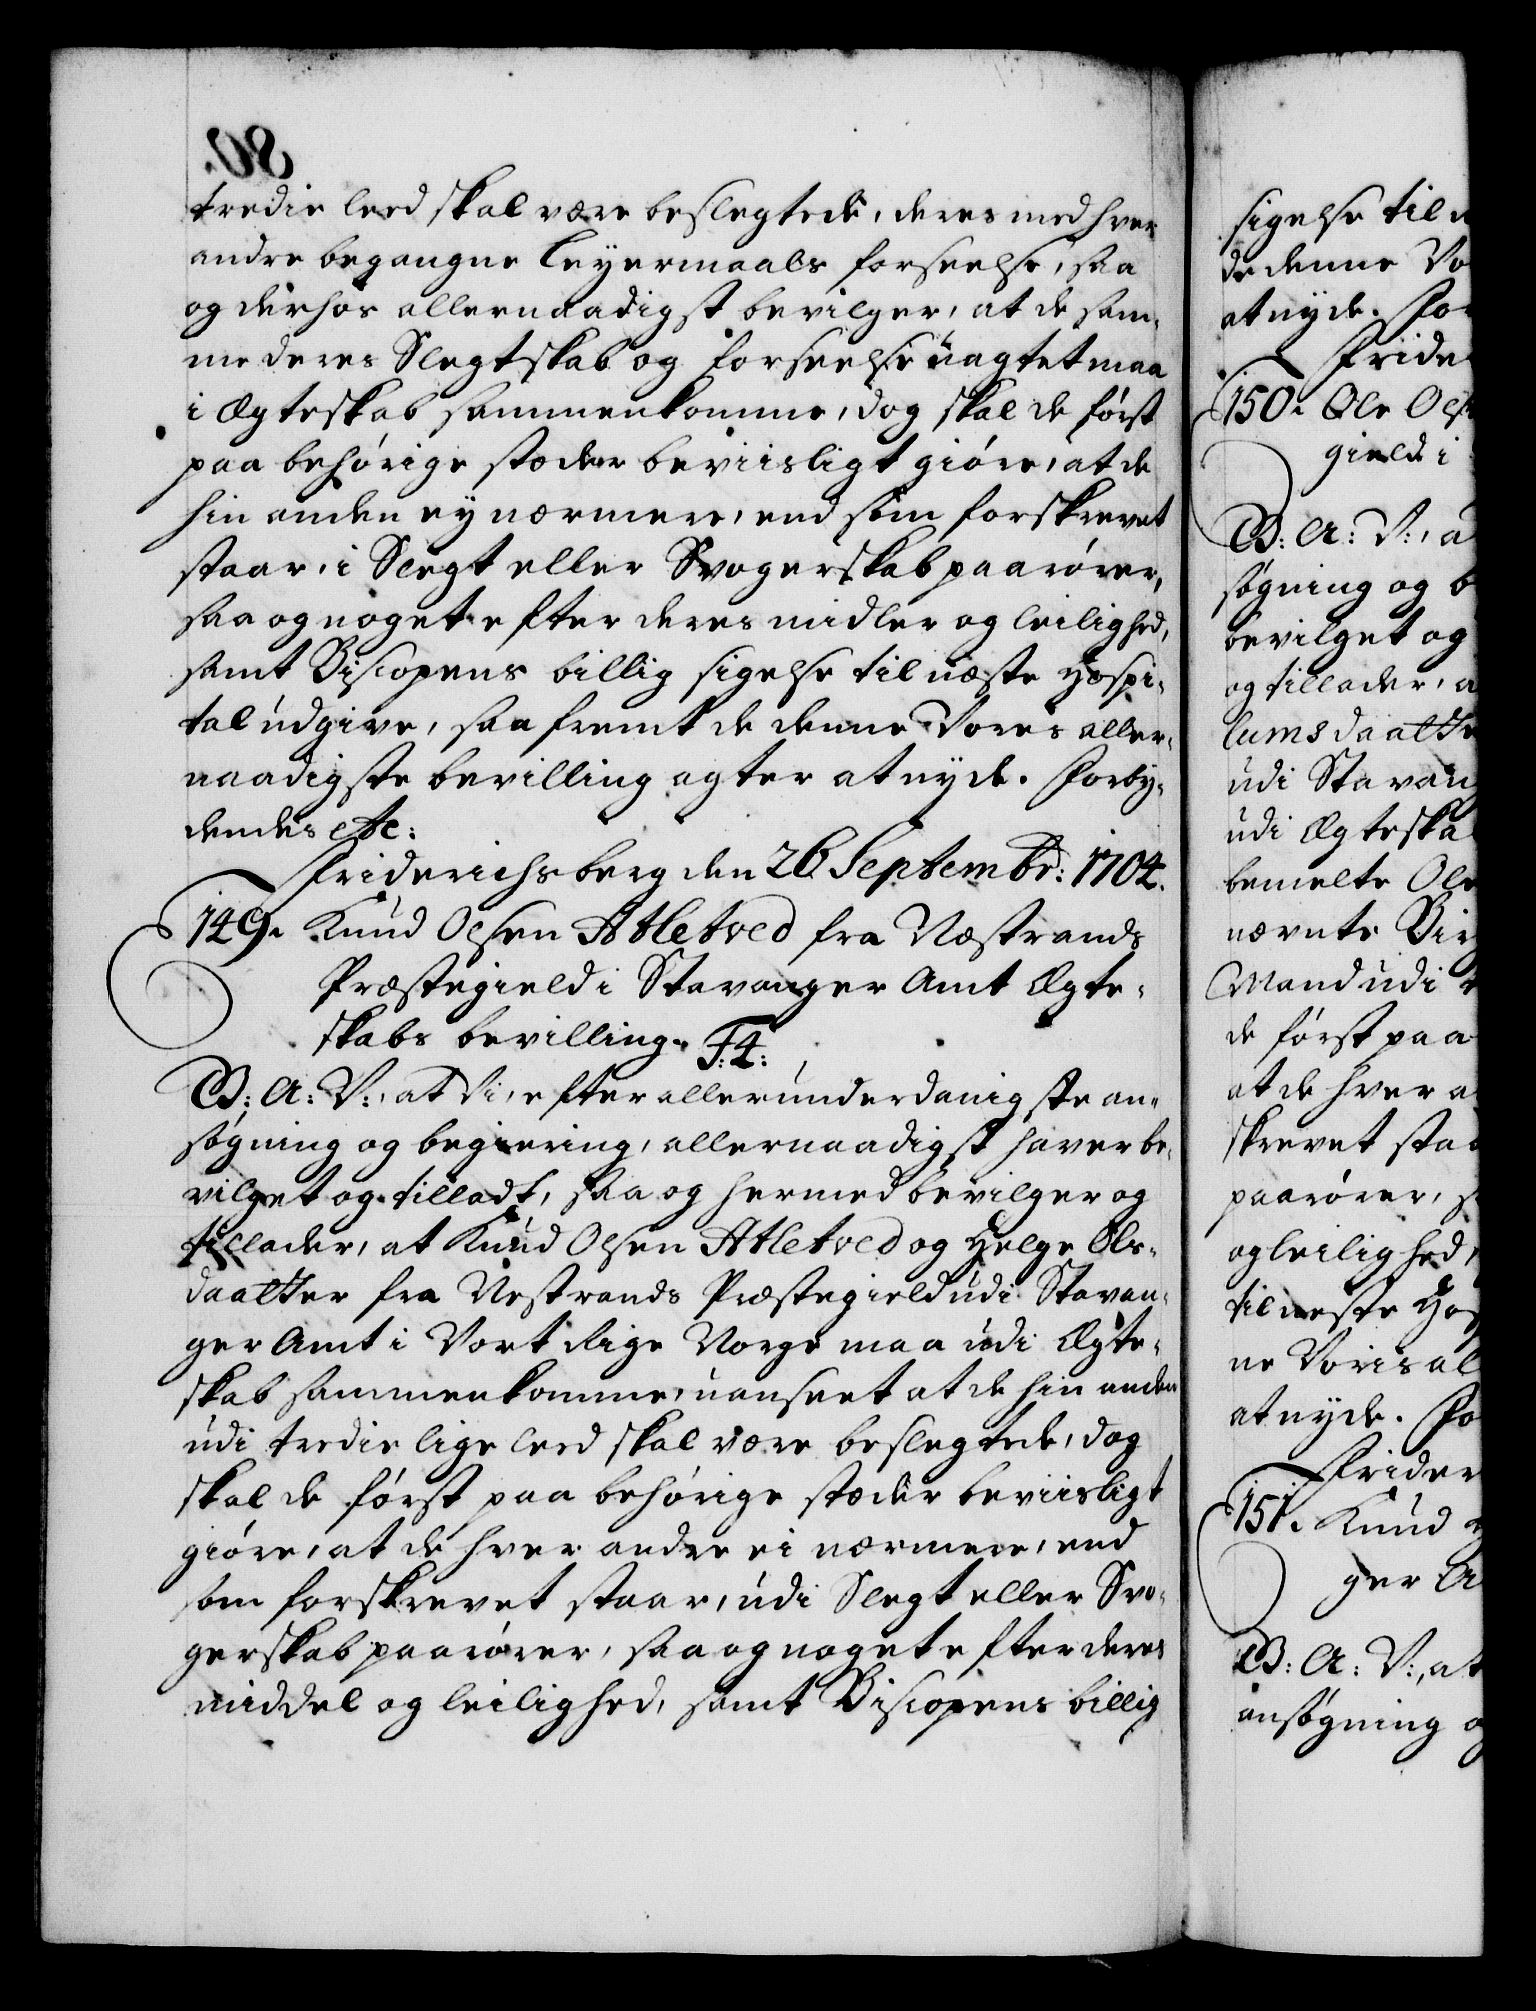 tredie leed skal være beslegtede, deres med hver
andre begangne Leyermaals forseelse, saa
og derhos allernaadigst bevilger, at de sam-
me deres Slegtskab og forseelse uagtet maa
i Ægteskab sammenkomme, dog skal de først
paa behørige stæder beviisligt giøre, at de
hin anden ey nærmere, end som forskrevet
staar, i Slegt eller Svogerskab paarører,
saa og noget efter deres midler og leilighed,
samt Biscopens billig sigelse til næste Hospi-
tal udgive, saa fremt de denne Vores aller-
naadigste bevilling agter at nyde. Forby-
dendes etc:
Friderichsberg den 26 Septembr: 1704.
149. Knud Olsen Atletved fra Næstrands
Præstegield i Stavanger Amt Ægte-
skabs bevilling. F: 4:
G: A: V:, at Vi, efter allerunderdanigste an-
søgning og begiering, allernaadigst haver be-
vilget og tilladt, saa og hermed bevilger og
tillader, at Knud Olsen Atletved og Helge Ols-
daatter fra Nestrands Præstegield udi Stavan-
ger Amt i Vort Rige Norge maa udi Ægte-
skab sammenkomme, uanseet at de hin anden
udi tredie lige leed skal være beslegtede, dog
skal de først paa behørige stæder beviisligt
giøre, at de hver andre ei nærmere, end
som forskrevet staar, udi Slegt eller Svo-
gerskab paarører, saa og noget efter deres
middel og leilighed, samt Biscopens billig
sigelse til n
de denne Vo
at nyde. For
Frider
150. Ole Ols
gield i
G: A: V:, a
søgning og b
bevilget og
og tillader, a
lumsdaatte
udi Stavang
udi Ægteska
bemelte Ole
nævnte Bir
Mand udi
de først paa
at de hver a
skrevet staa
paarører, s
og leilighed,
til neste Hos
ne Voris al
at nyde. Fo
Frider
151. Knud
ger A
G: A: V:, at
ansøgning o